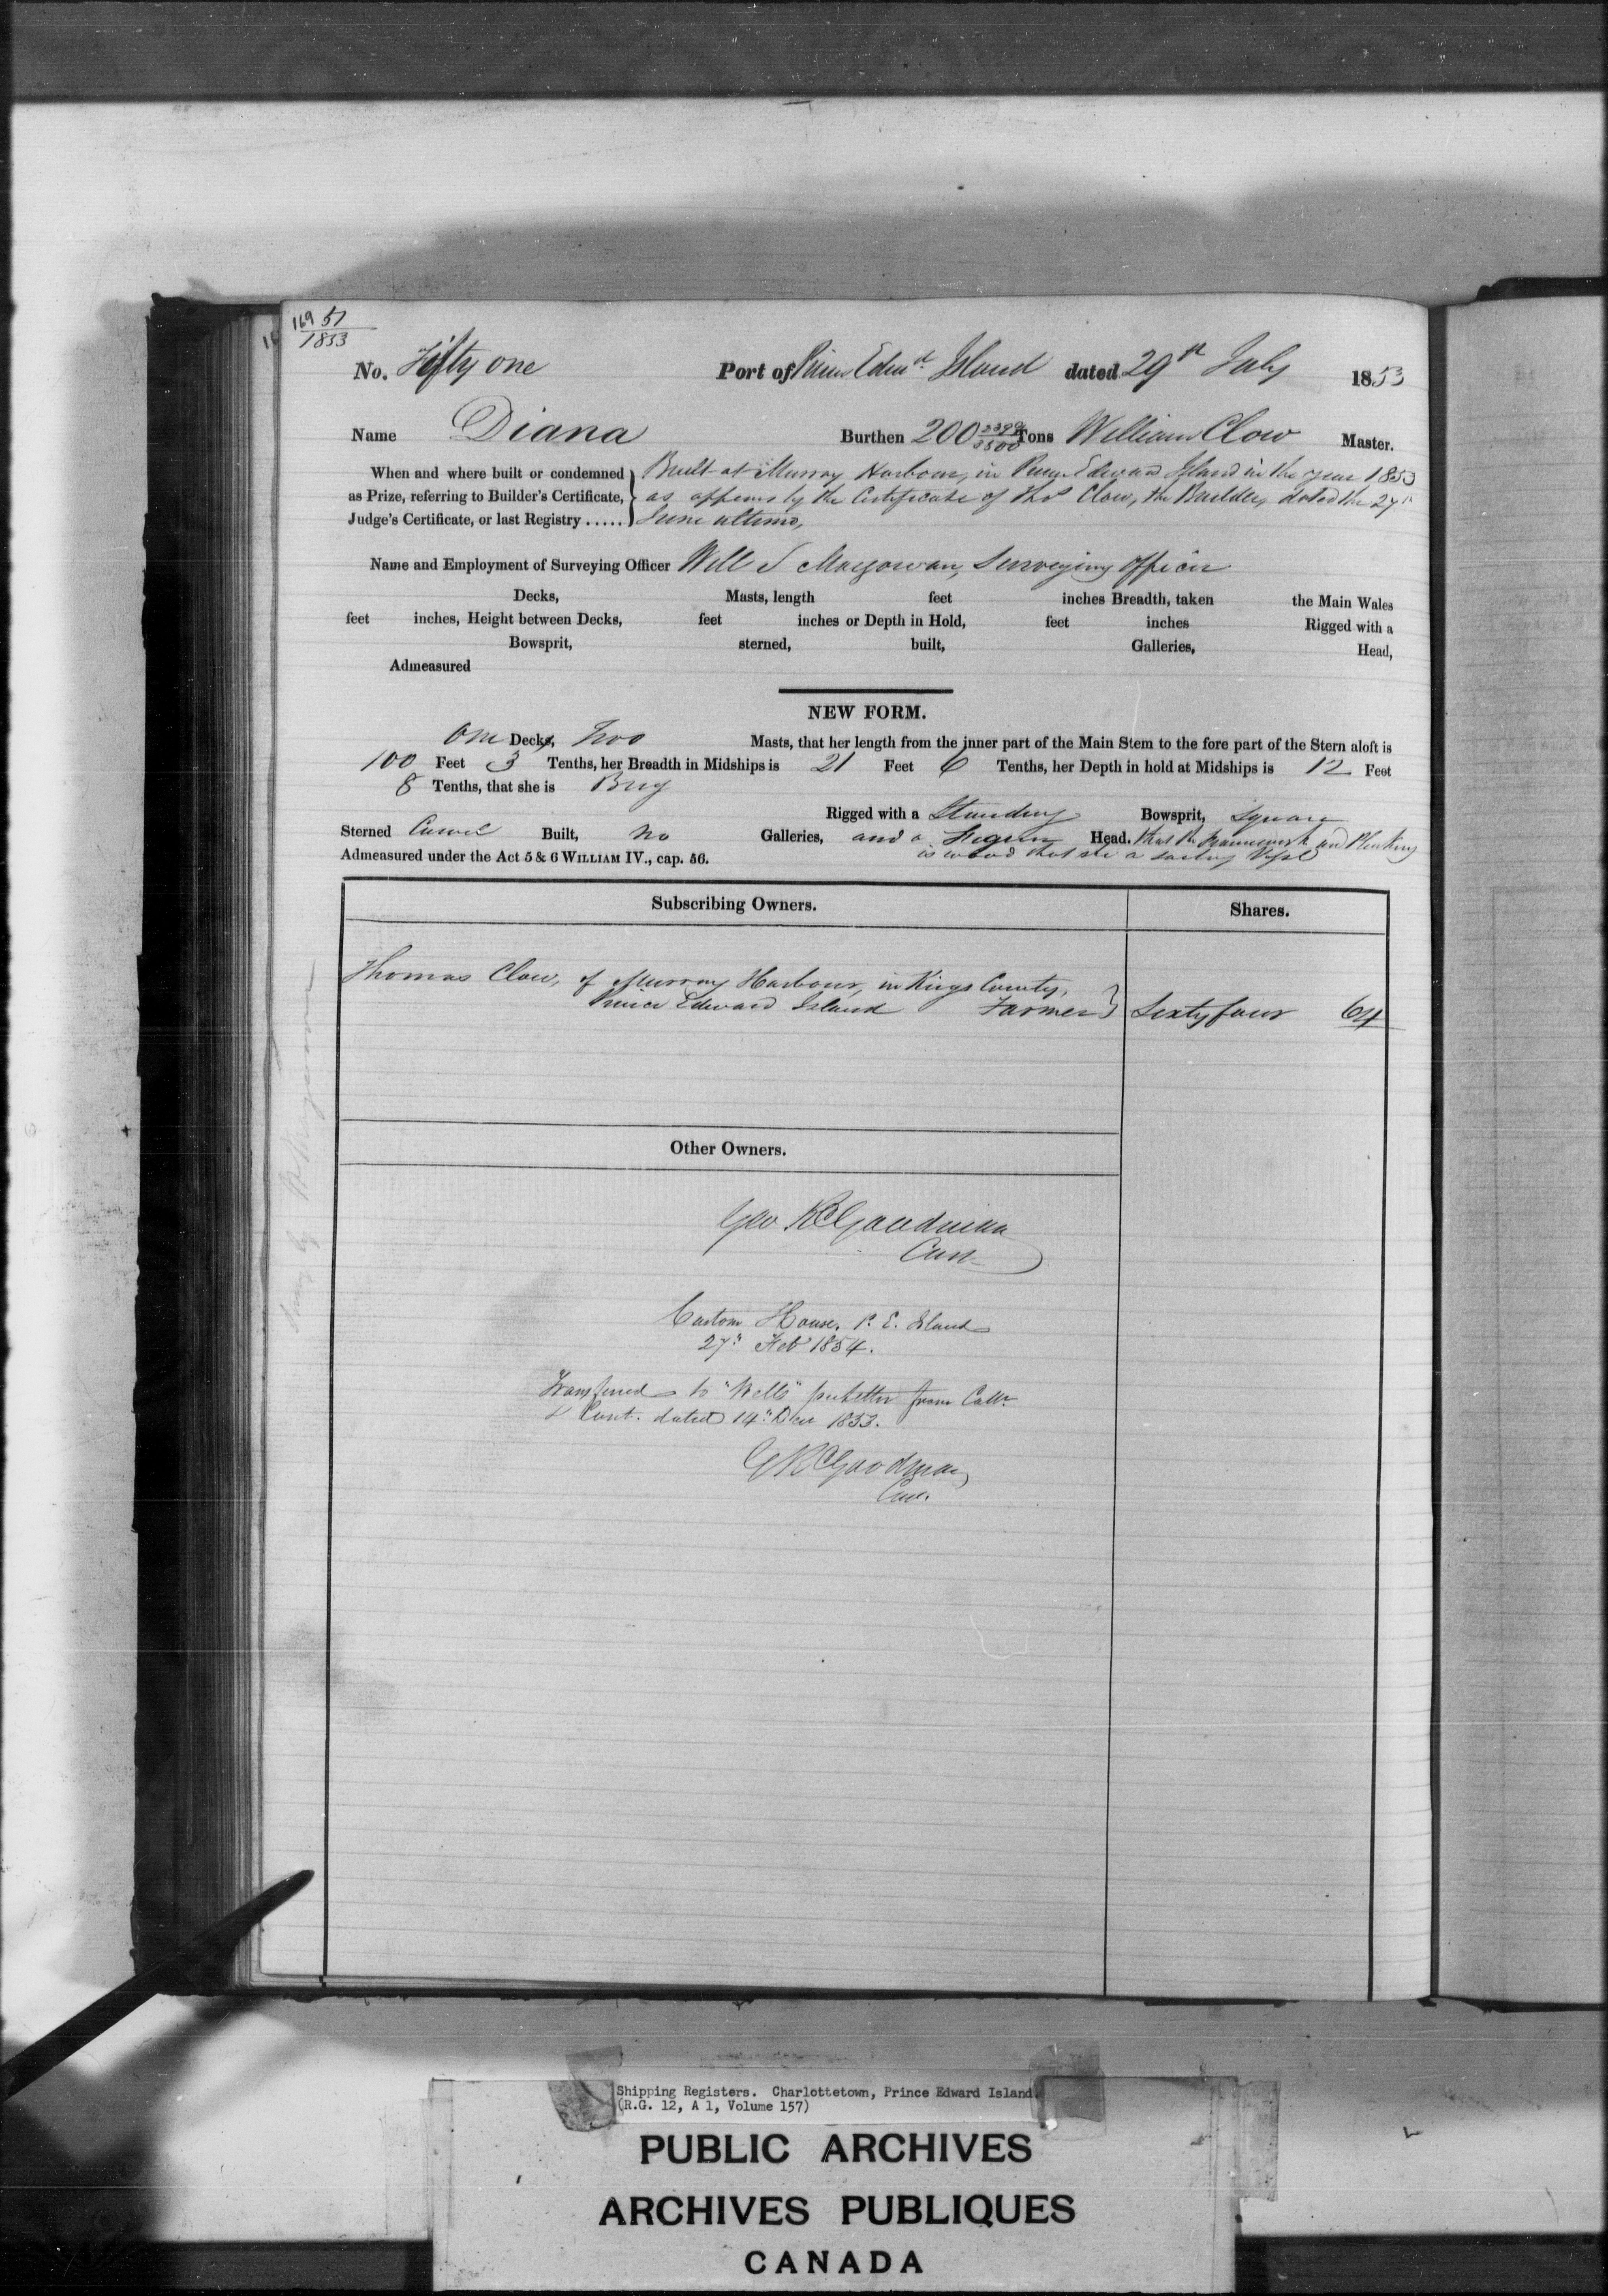 169 51
1853
No. Fifty one Port of Prince Edwd. Island dated 29th July 1853
Name Diana Burthen 200 2399/3500 Tons William Clow Master.
When and where built or condemned } Built at Murray Harbour, in Prince Edward Island in the year 1853
as Prize, referring to Builder's Certificate, } as appears by the Certificate of Thos Clow, the Builder, dated the 27th
Judge's Certificate, or last Registry ..... } June ultimo,
Name and Employment of Surveying Officer Will S Macgowan, Surveying Officer
Decks, Masts, length feet inches Breadth, taken the Main Wales
feet inches, Height between Decks, feet inches or Depth in Hold, feet inches Rigged with a
Bowsprit, sterned, built, Galleries, Head,
Admeasured
NEW FORM.
One Decks, Two Masts, that her length from the inner part of the Main Stem to the fore part of the Stern aloft is
100 Feet 3 Tenths, her Breadth in Midships is 21 Feet 6 Tenths, her Depth in hold at Midships is 12 Feet
8 Tenths, that she is Brig
Rigged with a Standing Bowsprit, Square
Sterned Carvel Built, No Galleries, and a Figure Head. that the Framework and Planking
Admeasured under the Act 5 & 6 WILLIAM IV., cap. 56. is wood that she a sailing Vessel
Subscribing Owners. Shares.
Thomas Clow, of Murray Harbour, in Kings County,
Prince Edward Island Farmer } Sixty four 64
Other Owners.
Geo R Goodman
Custom House, P. E. Island
27" Feb 1854.
Transferred to "Wells" pr letter from Collr
& Cont. dated 14" Decr 1853.
G R Goodman
Shipping Registers. Charlottetown, Prince Edward Island.
(R.G. 12, A 1, Volume 157)
PUBLIC ARCHIVES
ARCHIVES PUBLIQUES
CANADA